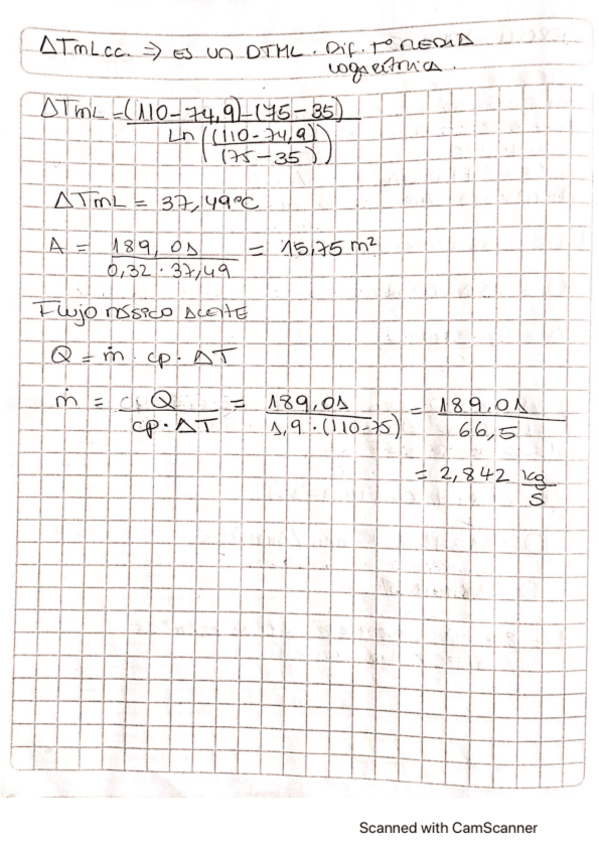 ΔTmLcc. ⇒ ES UN DTML. Dif. Tº MEDIA
Logarítmica.
ΔTmL = (110-74,9)-(75-35)
Ln ((110-74,9)
(75-35))
ΔTmL = 37,49ºC
A = 189,01 = 15,75 m²
0,32 · 37,49
Flujo MÁSICO ACEITE
Q = ṁ · cp · ΔT
ṁ = Q = 189,01 = 189,01
cp · ΔT 1,9 · (110-75) 66,5
= 2,842 kg
s
Scanned with CamScanner